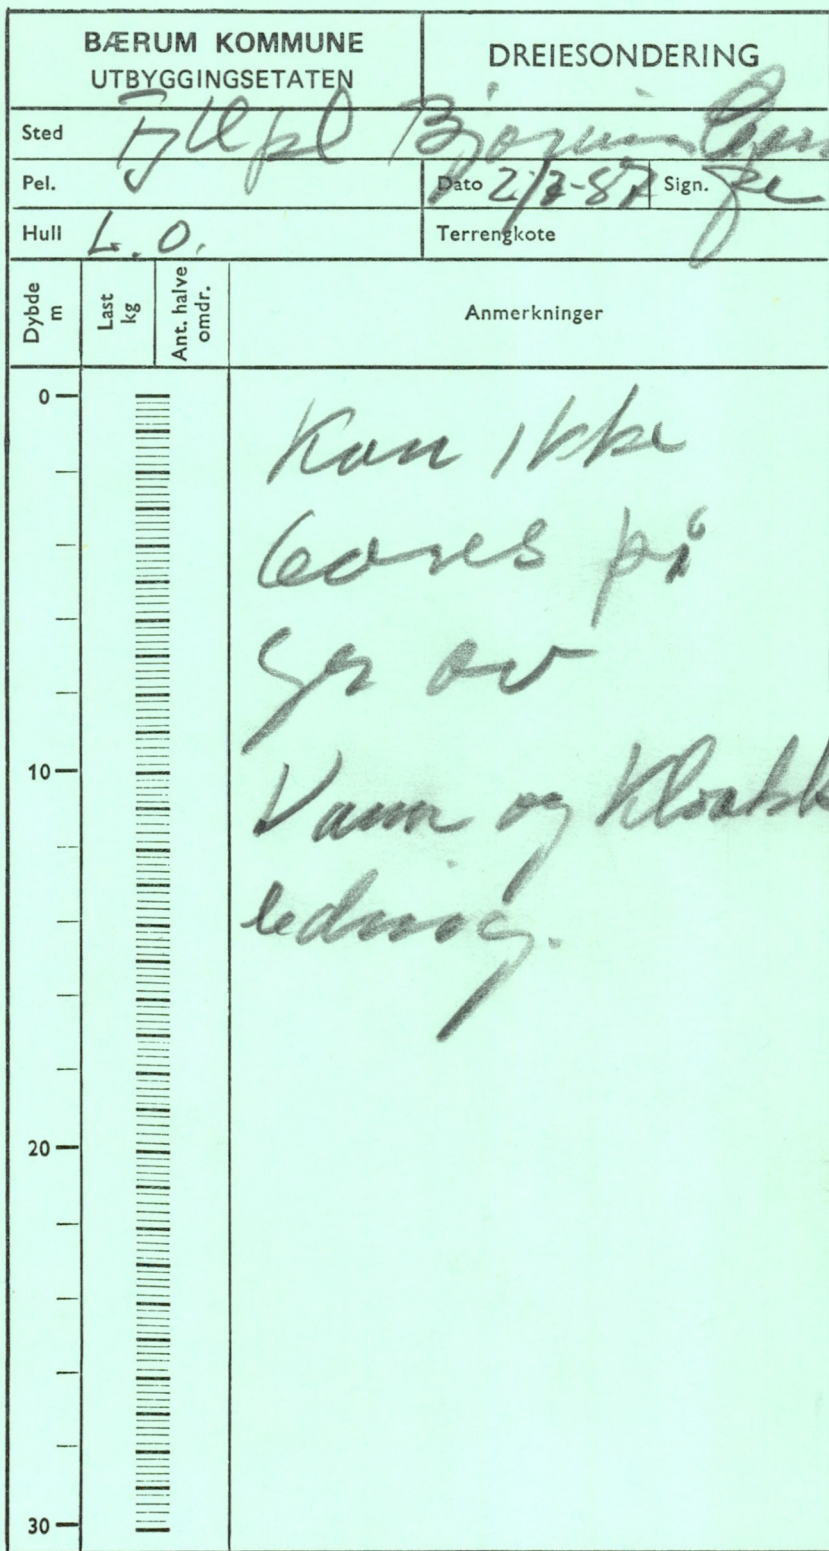 BÆRUM KOMMUNE
UTBYGGINGSETATEN
DREIESONDERING
Sted Fyllpl
Pel.
Dato 2/2-87 Sign.
Hull L.O.
Terrengkote
Dybde m
Last kg
Ant. halve omdr.
Anmerkninger
0
Kan ikke
bores på
gr av
10
Vann og Kloakk
ledning.
20
30